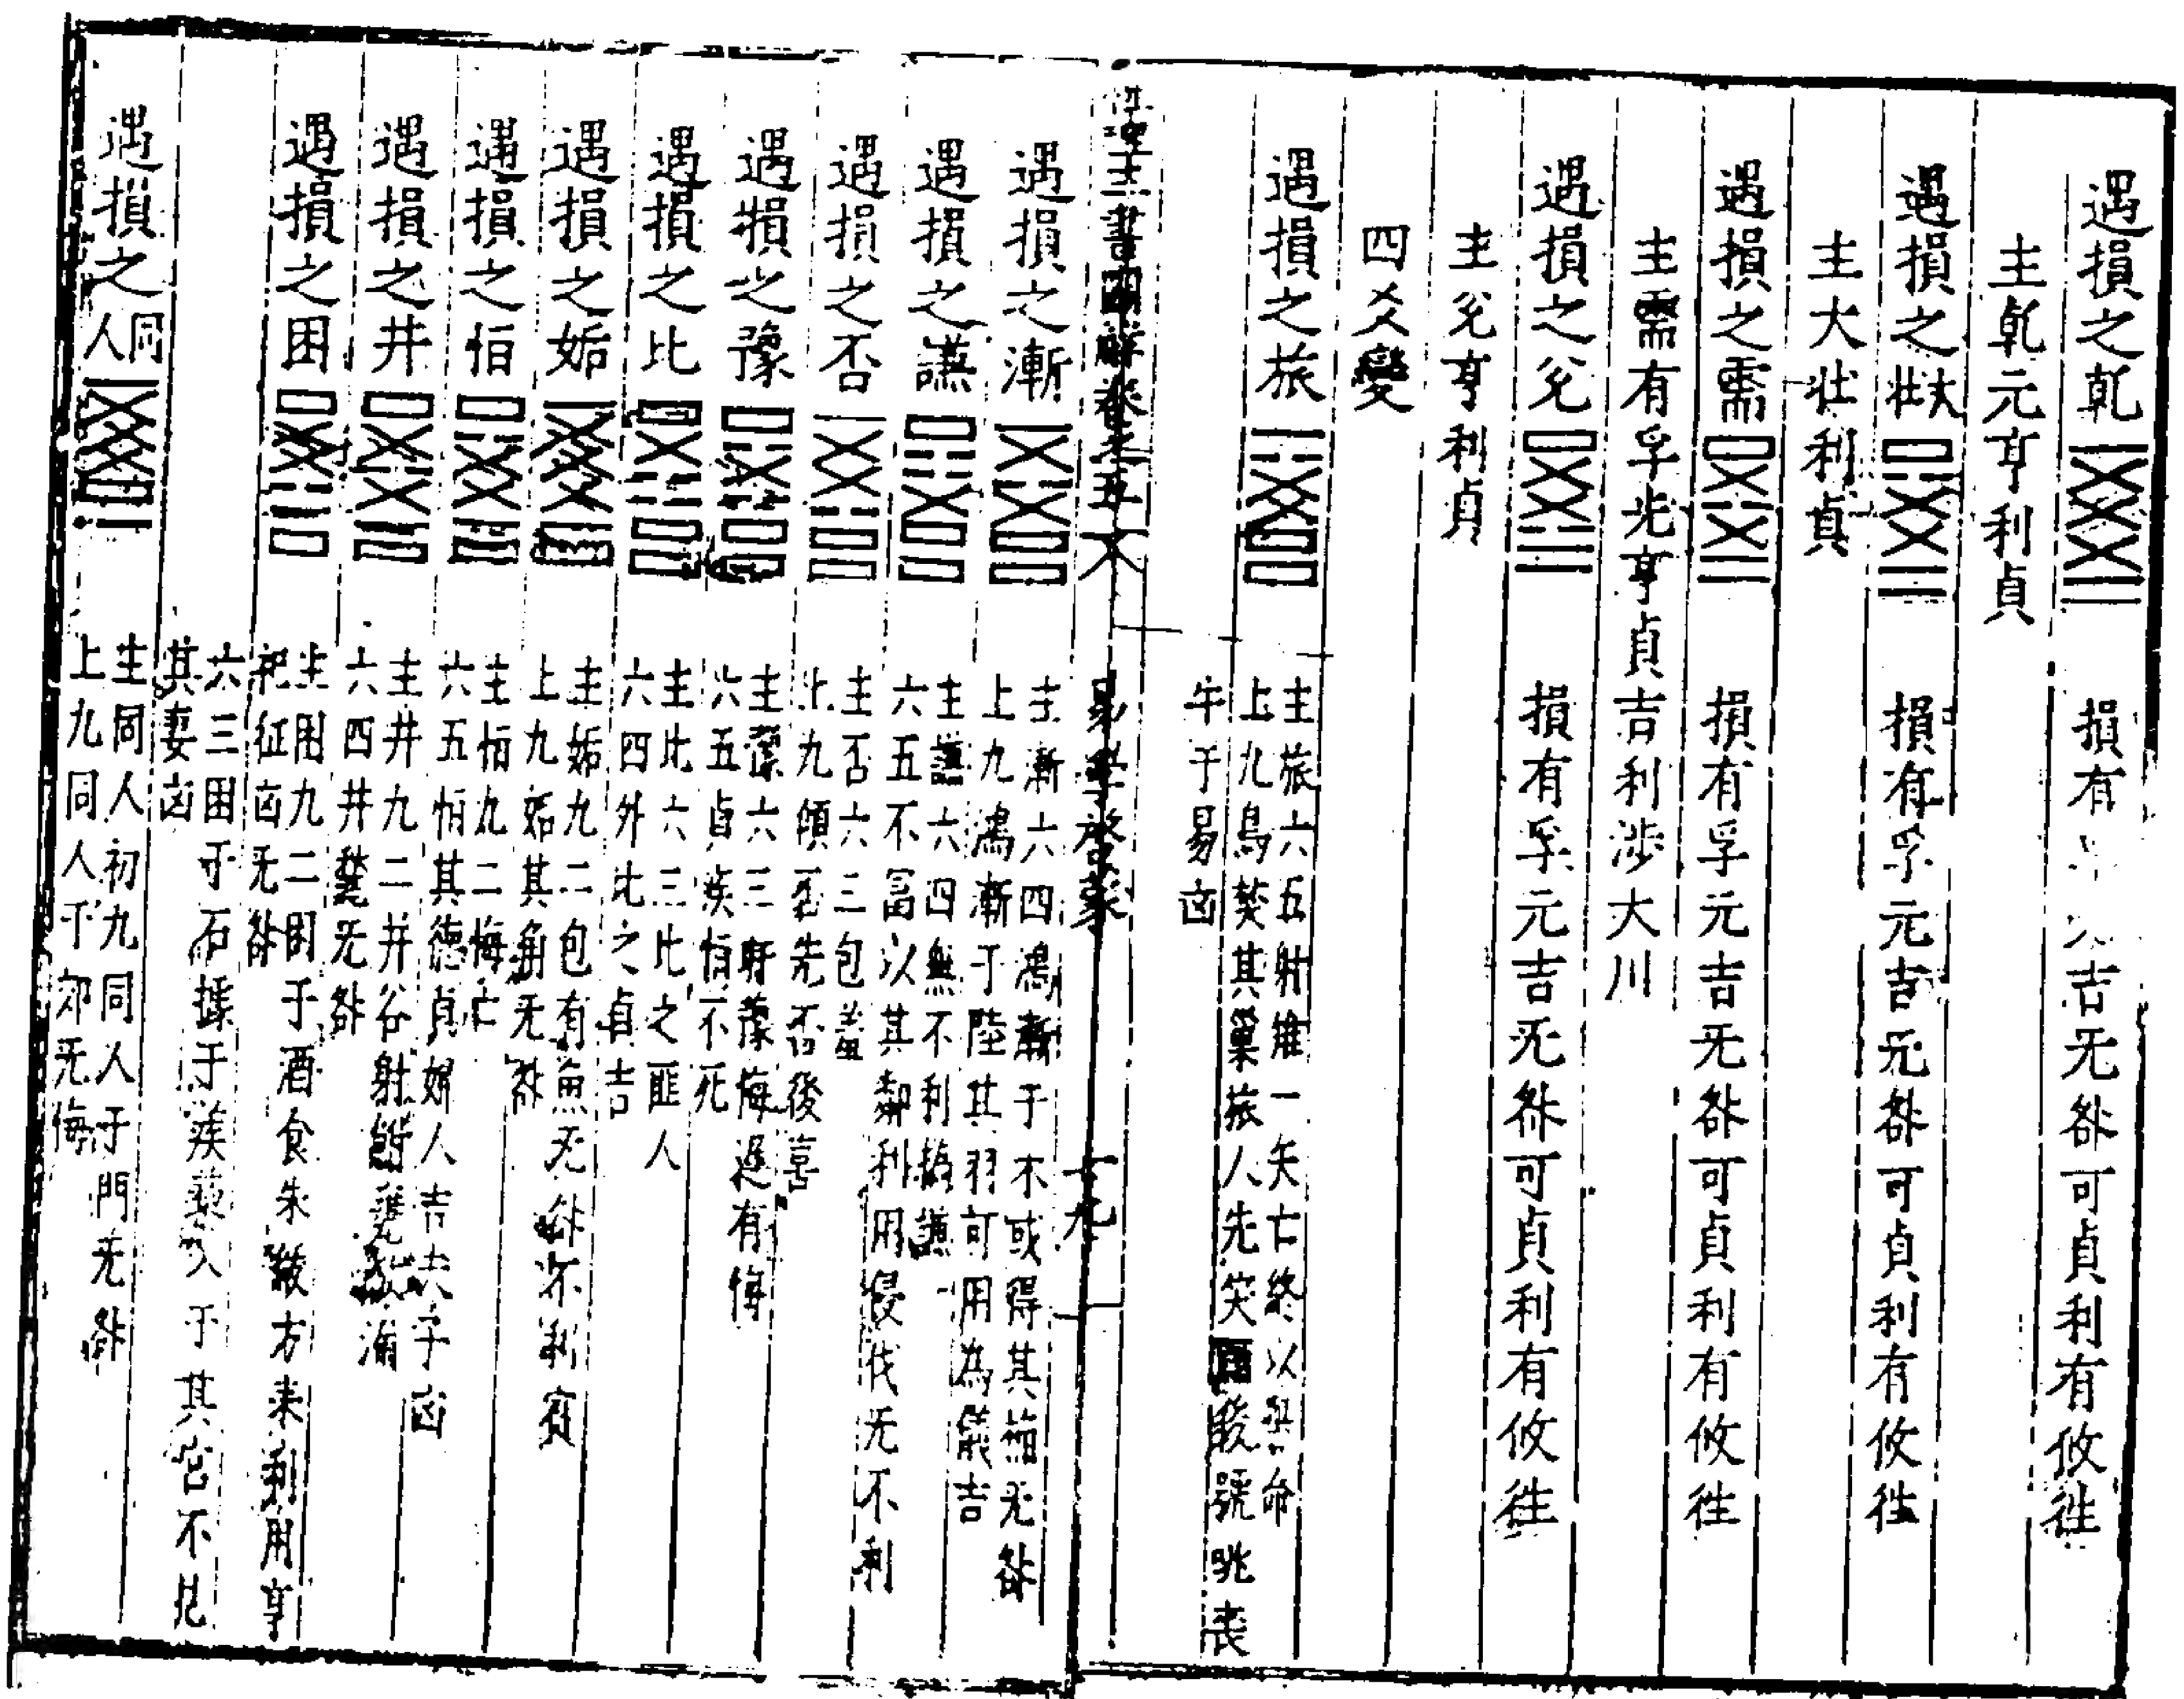 遇損之乾 損有 吉无咎可貞利有攸往
主乾元亨利貞
遇損之大壯 損有孚元吉无咎可貞利有攸往
主大壯利貞
遇損之需 損有孚元吉无咎可貞利有攸往
主需有孚光亨貞吉利涉大川
遇損之兌 損有孚元吉无咎可貞利有攸往
主兌亨利貞
四爻變
遇損之旅 主旅六五射雉一矢亡終以譽命
上九鳥焚其巢旅人先笑後號咷喪
牛于易凶
性理書圖解卷之五 易學啓蒙
遇損之漸 主漸六四鴻漸于木或得其桷无咎
上九鴻漸于陸其羽可用為儀吉
遇損之謙 主謙六四無不利撝謙
六五不富以其鄰利用侵伐无不利
遇損之否 主否六三包羞
上九傾否先否後喜
遇損之豫 主豫六三盱豫悔遲有悔
六五貞疾恒不死
遇損之比 主比六三比之匪人
六四外比之貞吉
遇損之姤 主姤九二包有魚无咎不利賓
上九姤其角无咎
遇損之恒 主恒九二悔亡
六五恒其德貞婦人吉夫子凶
遇損之井 主井九二井谷射鮒甕敝漏
六四井甃无咎
遇損之困 主困九二困于酒食朱紱方来利用亨
祀征凶无咎
六三困于石據于蒺藜入于其宮不見
其妻凶
遇損之同人 主同人初九同人于門无咎
上九同人于郊无悔